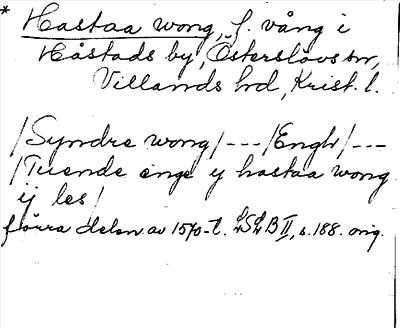 * Hastaa wong, f. vång i
Håstads by, Österslövs sn,
Villands hd, Krist. l.
/Syndre wong/ --- /Engh/ ---
/Tuende enge y hastaa wong
ij les/
förra delen av 1570-t. LSLB II, s. 188. orig.